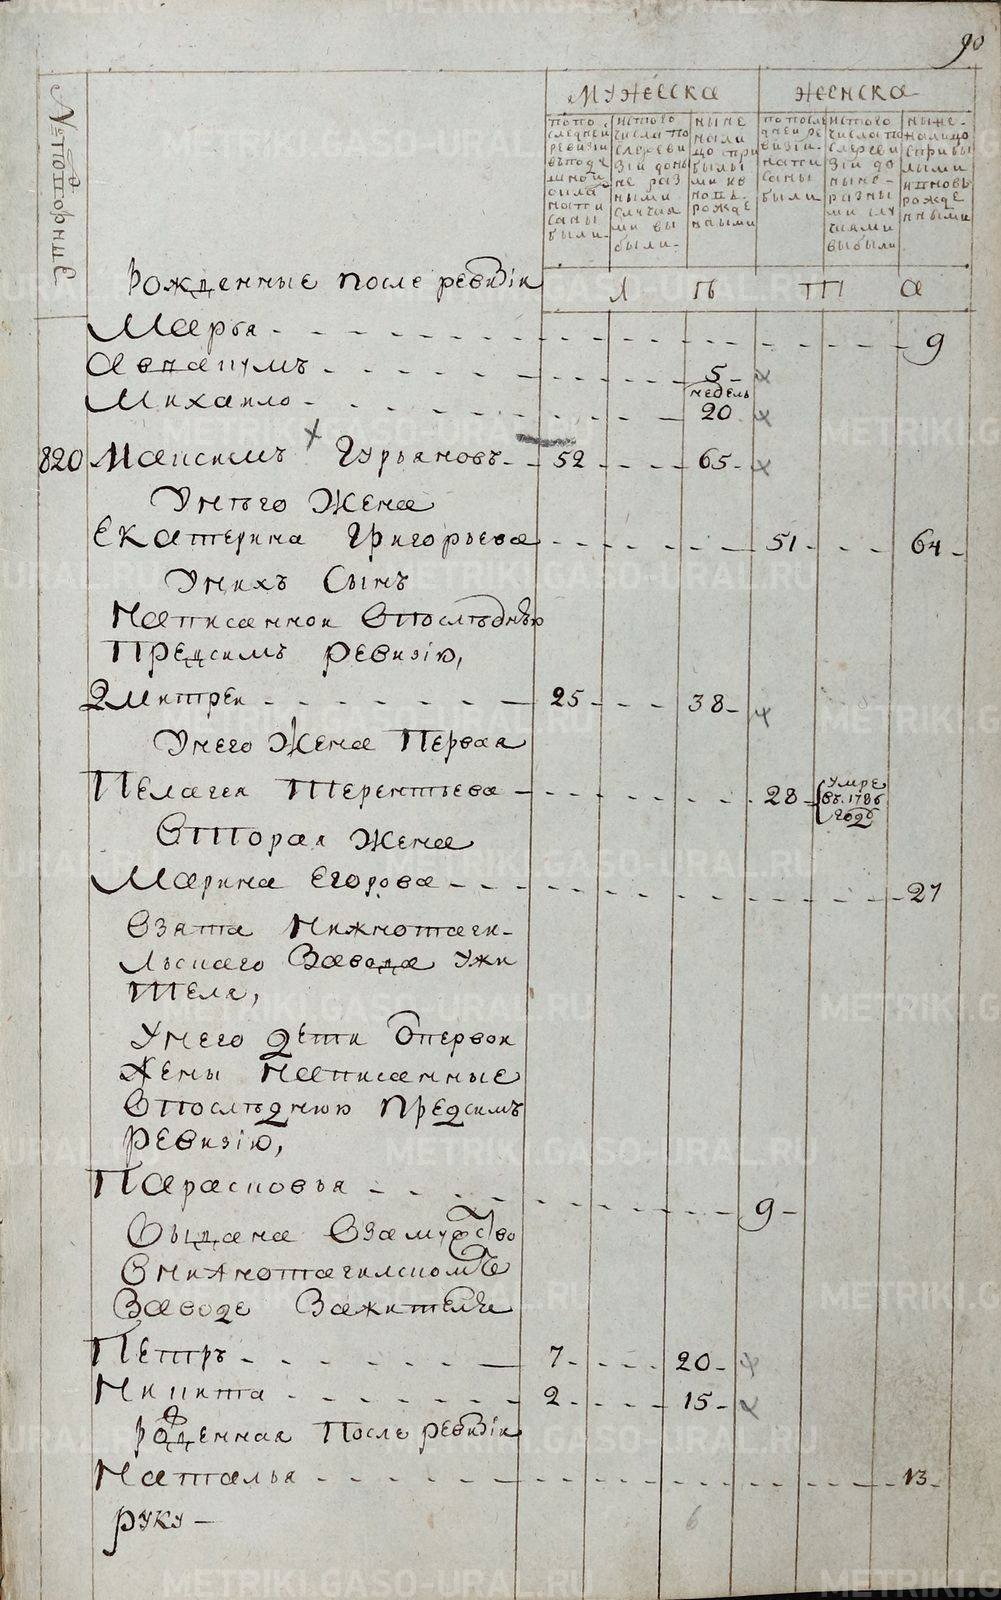 90
№ подворные
мужеска
женска
по последней ревизіи въ поданной сила написаны были
ис того числа после ревизіи до ныне разными случаями выбыли
ныне налицо прибылыми и вновь рожденными
по последней ревизіи написаны были
ис того числа после ревизіи до ныне разными случаями выбыли
ныне налицо с прибылыми и вновь рожденными
Рожденные после ревизіи
Л ѣ т а
Марья 9
Авванумъ 5
Михаило недель 20
820 Максимъ Гурьяновъ 52 65
У него жена
Екатерина Григорьева 51 64
У нихъ сынъ
Написанной в последнюю
пред симъ ревизію,
Дмитреи 25 38
У него жена первая
Пелагея Терентьева 28 умре въ 1786 годѣ
Вторая жена
Марина Егорова 27
Взята Нижнотаги-
льскаго завода у жи
теля,
У него дети от первои
жены написанные
в последнюю пред симъ
ревизію,
Парасковья 9
Выдана в замужство
в Нижнотагилскомъ
заводе за жителя
Петръ 7 20
Никита 2 15
Рожденная после ревизіи
Наталья 13
руку
6
METRIKI.GASO-URAL.RU